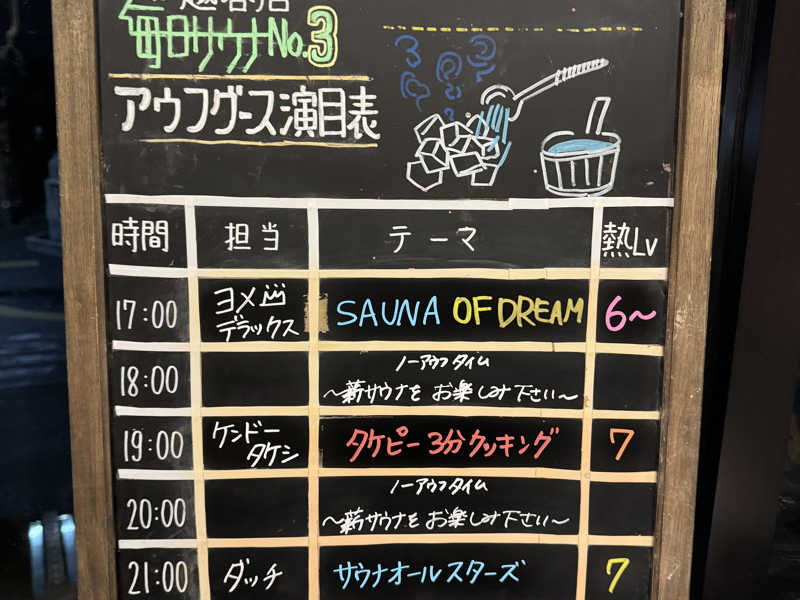 毎日サウナNo.3
アウフグース演目表
時間 担当 テーマ 熱Lv
17:00 ヨメ山 デラックス SAUNA OF DREAM 6〜
18:00 ノーアウフタイム
〜薪サウナをお楽しみ下さい〜
19:00 ケンドー タケシ タケピー3分クッキング 7
20:00 ノーアウフタイム
〜薪サウナをお楽しみ下さい〜
21:00 ダッチ サウナオールスターズ 7